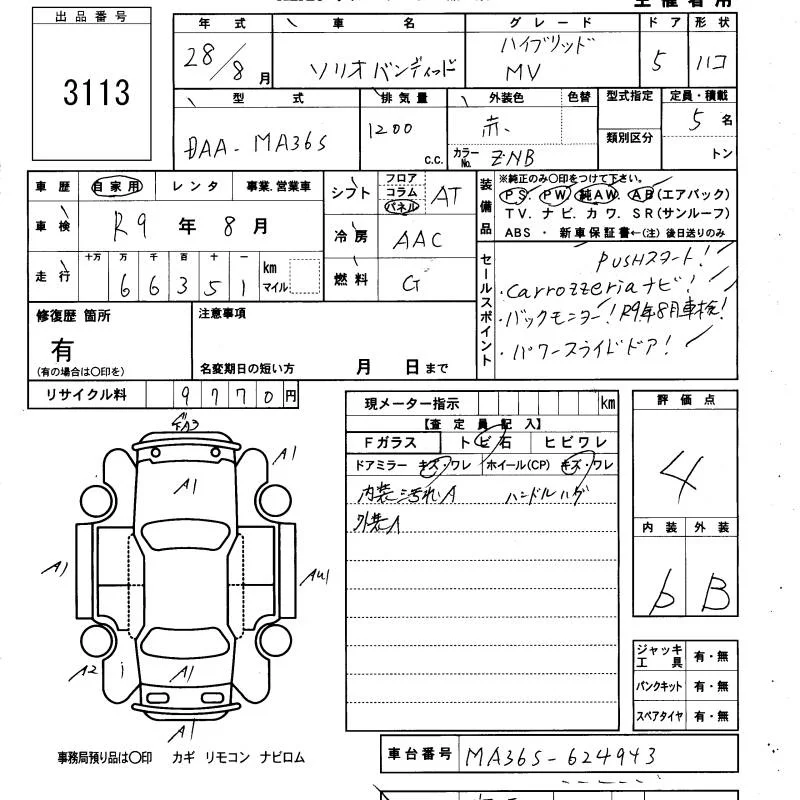 出品番号
3113
年式 車名 グレード ドア 形状
28/8月 ソリオ バンディッド ハイブリッド MV 5 ハコ
型式 排気量 外装色 色替 型式指定 定員・積載
DAA-MA36S 1200 c.c. 赤 カラーNo. ZNB 類別区分 5名 トン
車歴 自家用 レンタ 事業.営業車
車検 R9年8月
走行 十万 万 千 百 十 一
66351 km マイル
シフト フロア コラム パネル AT
冷房 AAC
燃料 G
装備品 ※純正のみ〇印をつけて下さい。
PS. PW. 純AW. AB(エアバック)
TV. ナビ. カワ. SR(サンルーフ)
ABS ・ 新車保証書←(注) 後日送りのみ
セールスポイント
PUSHスタート!
・carrozzeriaナビ!
・バックモニター! R9年8月車検!
・パワースライドドア!
修復歴 箇所
有
(有の場合は〇印を)
注意事項
名変期日の短い方 月 日まで
リサイクル料 9770円
現メーター指示 km
【査定員記入】
Fガラス トビ石 ヒビワレ
ドアミラー キズ・ワレ ホイール(CP) キズ・ワレ
内装汚れA ハンドルハゲ
外装A
評価点
4
内装 外装
b B
A3
A1
A1
A1
AU1
A2
A1
A1
ジャッキ工具 有・無
パンクキット 有・無
スペアタイヤ 有・無
事務局預り品は〇印 カギ リモコン ナビロム
車台番号 MA36S-624943